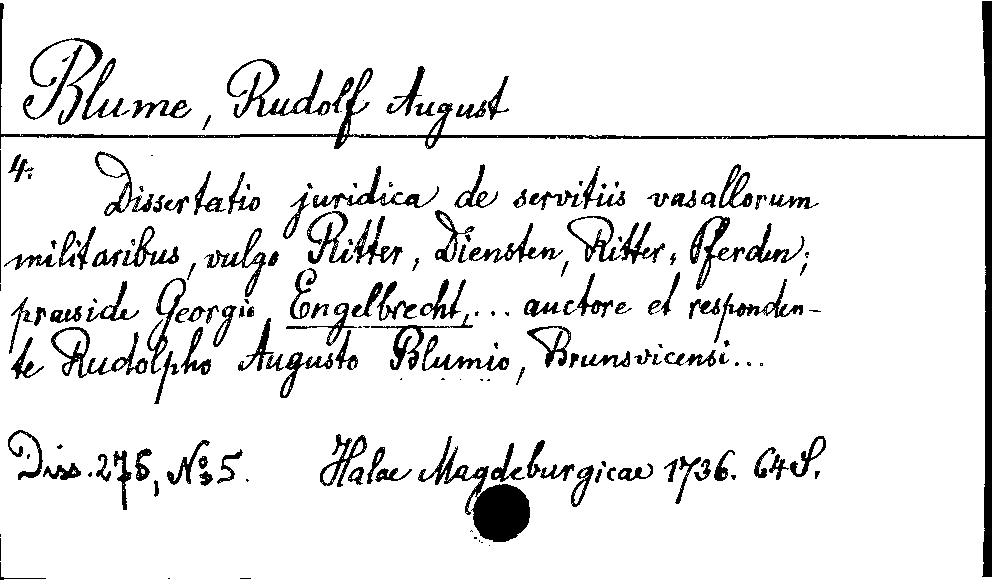 Blume, Rudolf August
4:
Dissertatio juridica de servitiis vasallorum
militaribus, vulgo Ritter, Diensten, Ritter, Pferden;
praeside Georgio Engelbrecht,... auctore et responden-
te Rudolpho Augusto Blumio, Brunsvicensi...
Diss. 275, No 5. Halae Magdeburgicae 1736. 64 S.